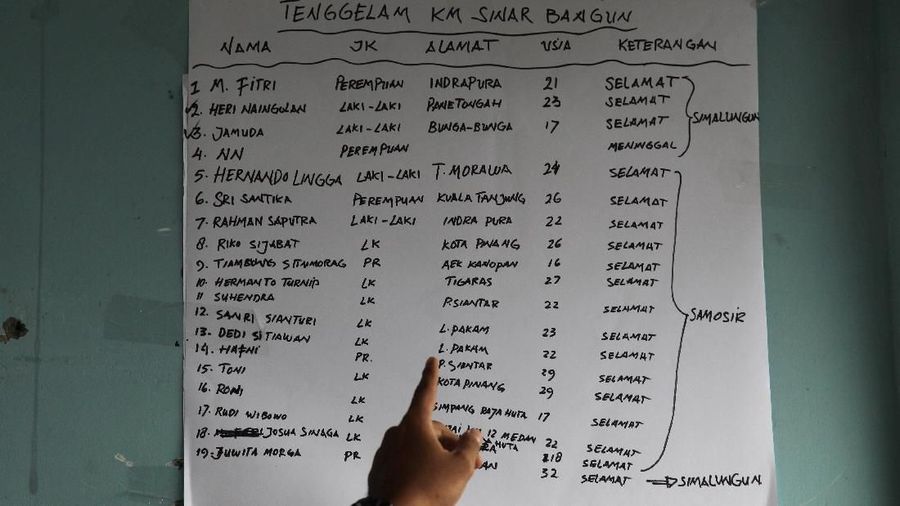 TENGGELAM KM SINAR BANGUN
NAMA JK ALAMAT USIA KETERANGAN
1 M. FITRI PEREMPUAN INDRAPURA 21 SELAMAT
2. HERI NAINGOLAN LAKI-LAKI PANETONGAH 23 SELAMAT
SIMALUNGUN
3. JAMUDA LAKI-LAKI BUNGA-BUNGA 17 SELAMAT
4. NN PEREMPUAN MENINGGAL
5. HERNANDO LINGGA LAKI-LAKI T. MORAWA 24 SELAMAT
6. SRI SANTIKA PEREMPUAN KUALA TANJUNG 26 SELAMAT
7. RAHMAN SAPUTRA LAKI-LAKI INDRA PURA 22 SELAMAT
8. RIKO SIJABAT LK KOTA PINANG 26 SELAMAT
9. TIAMBUNG SITUMORAG PR AEK KANOPAN 16 SELAMAT
10. HERMANTO TURNIP LK TIGARAS 27 SELAMAT
11 SUHENDRA LK P.SIANTAR 22 SELAMAT
SAMOSIR
12. SANRI SIANTURI LK L.PAKAM 23 SELAMAT
13. DEDI SITIAWAN LK L.PAKAM 22 SELAMAT
14. HAFNI PR. P.SIANTAR 29 SELAMAT
15. TONI LK KOTA PINANG 29 SELAMAT
16. RONI LK SIMPANG RAJA HUTA 17 SELAMAT
17. RUDI WIBOWO LK 12 MEDAN 22 SELAMAT
18. JOSUA SINAGA LK HUTA 18 SELAMAT
19. JUWITA MORGA PR 32 SELAMAT SIMALUNGUN